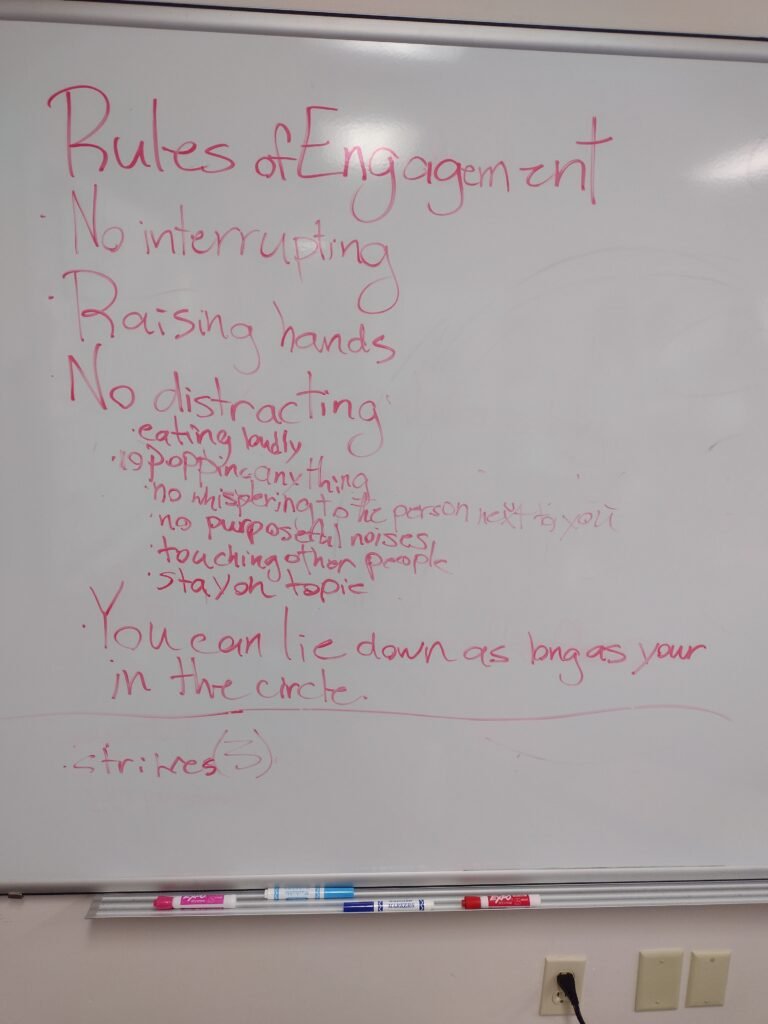 Rules of Engagement
· No interrupting
· Raising hands
No distracting
· eating loudly
· popping anything
· no whispering to the person next to you
· no purposeful noises,
· touching other people
· stay on topic
· You can lie down as long as your
in the circle.
· strikes (3)
EXPO
MARKERS
EXPO